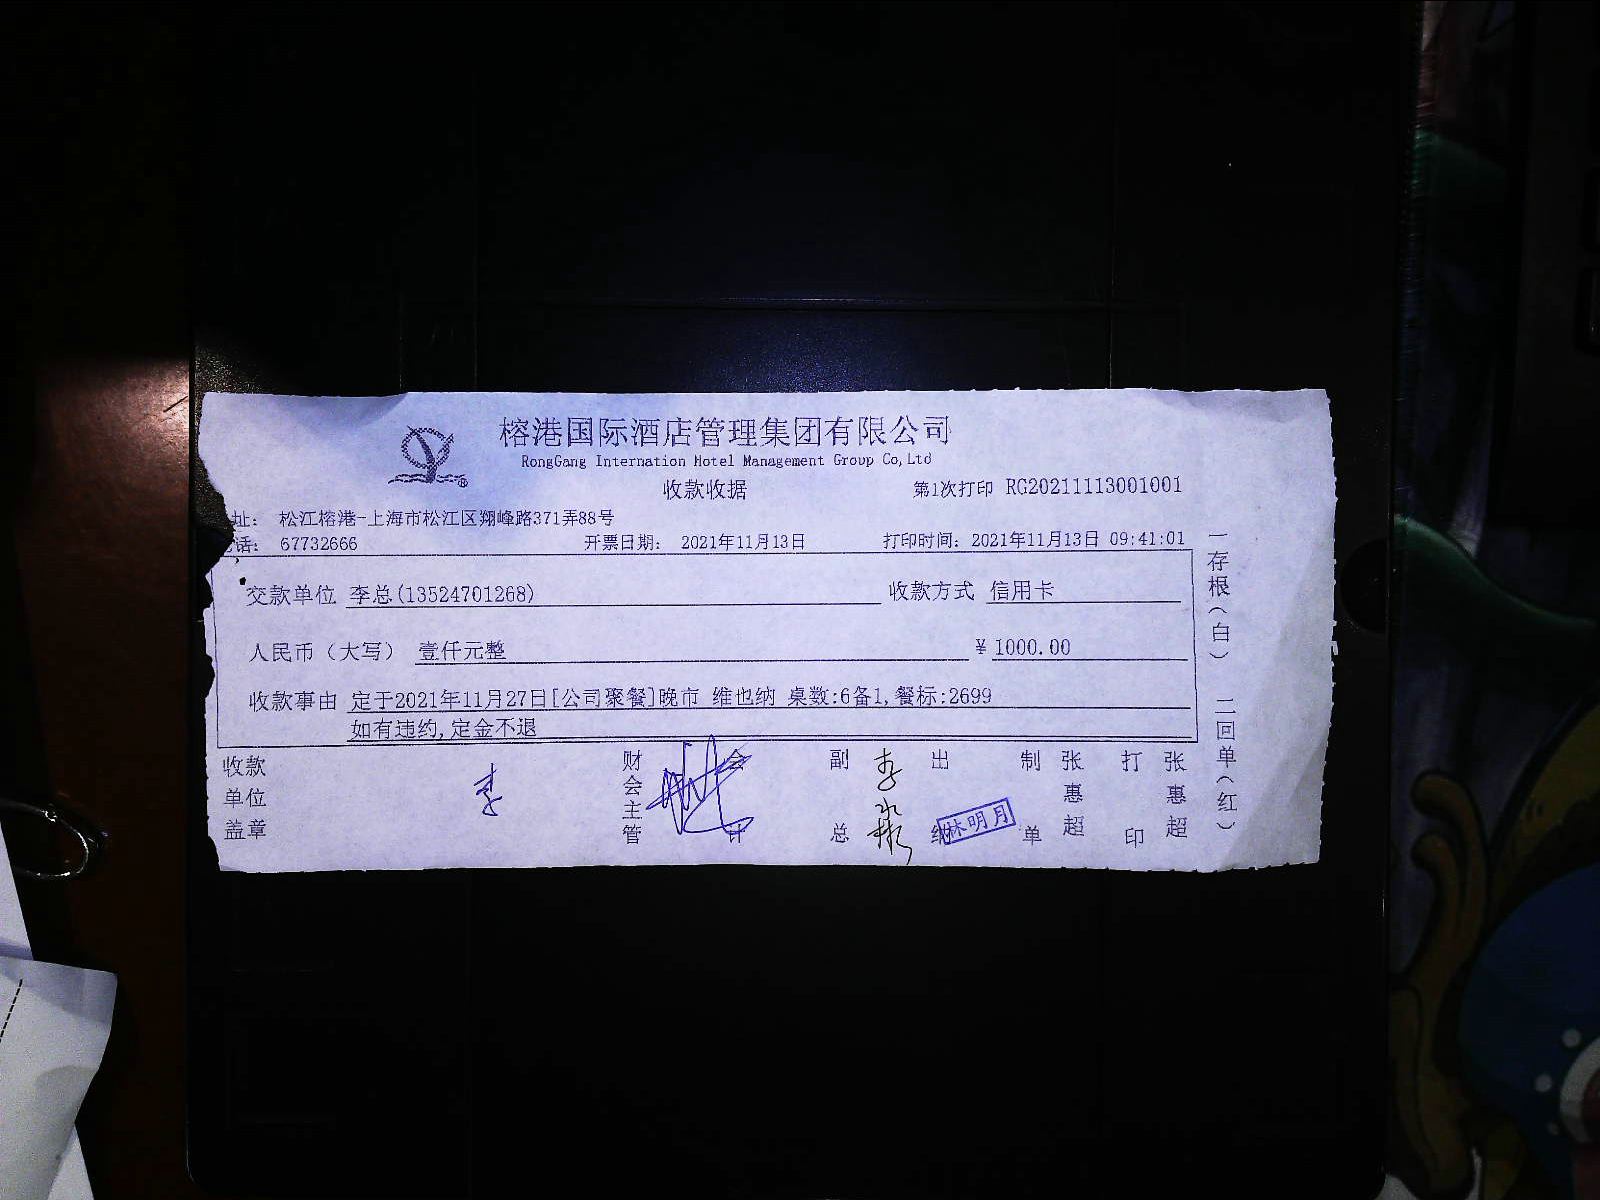 榕港国际酒店管理集团有限公司
RongGang Internation Hotel Management Group Co,Ltd
收款收据
第1次打印 RG20211113001001
址: 松江榕港-上海市松江区翔峰路371弄88号
话: 67732666 开票日期: 2021年11月13日 打印时间: 2021年11月13日 09:41:01
交款单位 李总(13524701268) 收款方式 信用卡
人民币（大写） 壹仟元整 ¥ 1000.00
收款事由 定于2021年11月27日[公司聚餐]晚市 维也纳 桌数:6备1,餐标:2699
如有违约,定金不退
收款单位盖章 李 财会主管 会计 副总 李 出纳 林明月 制单 张惠超 打印 张惠超
一存根(白) 二回单(红)